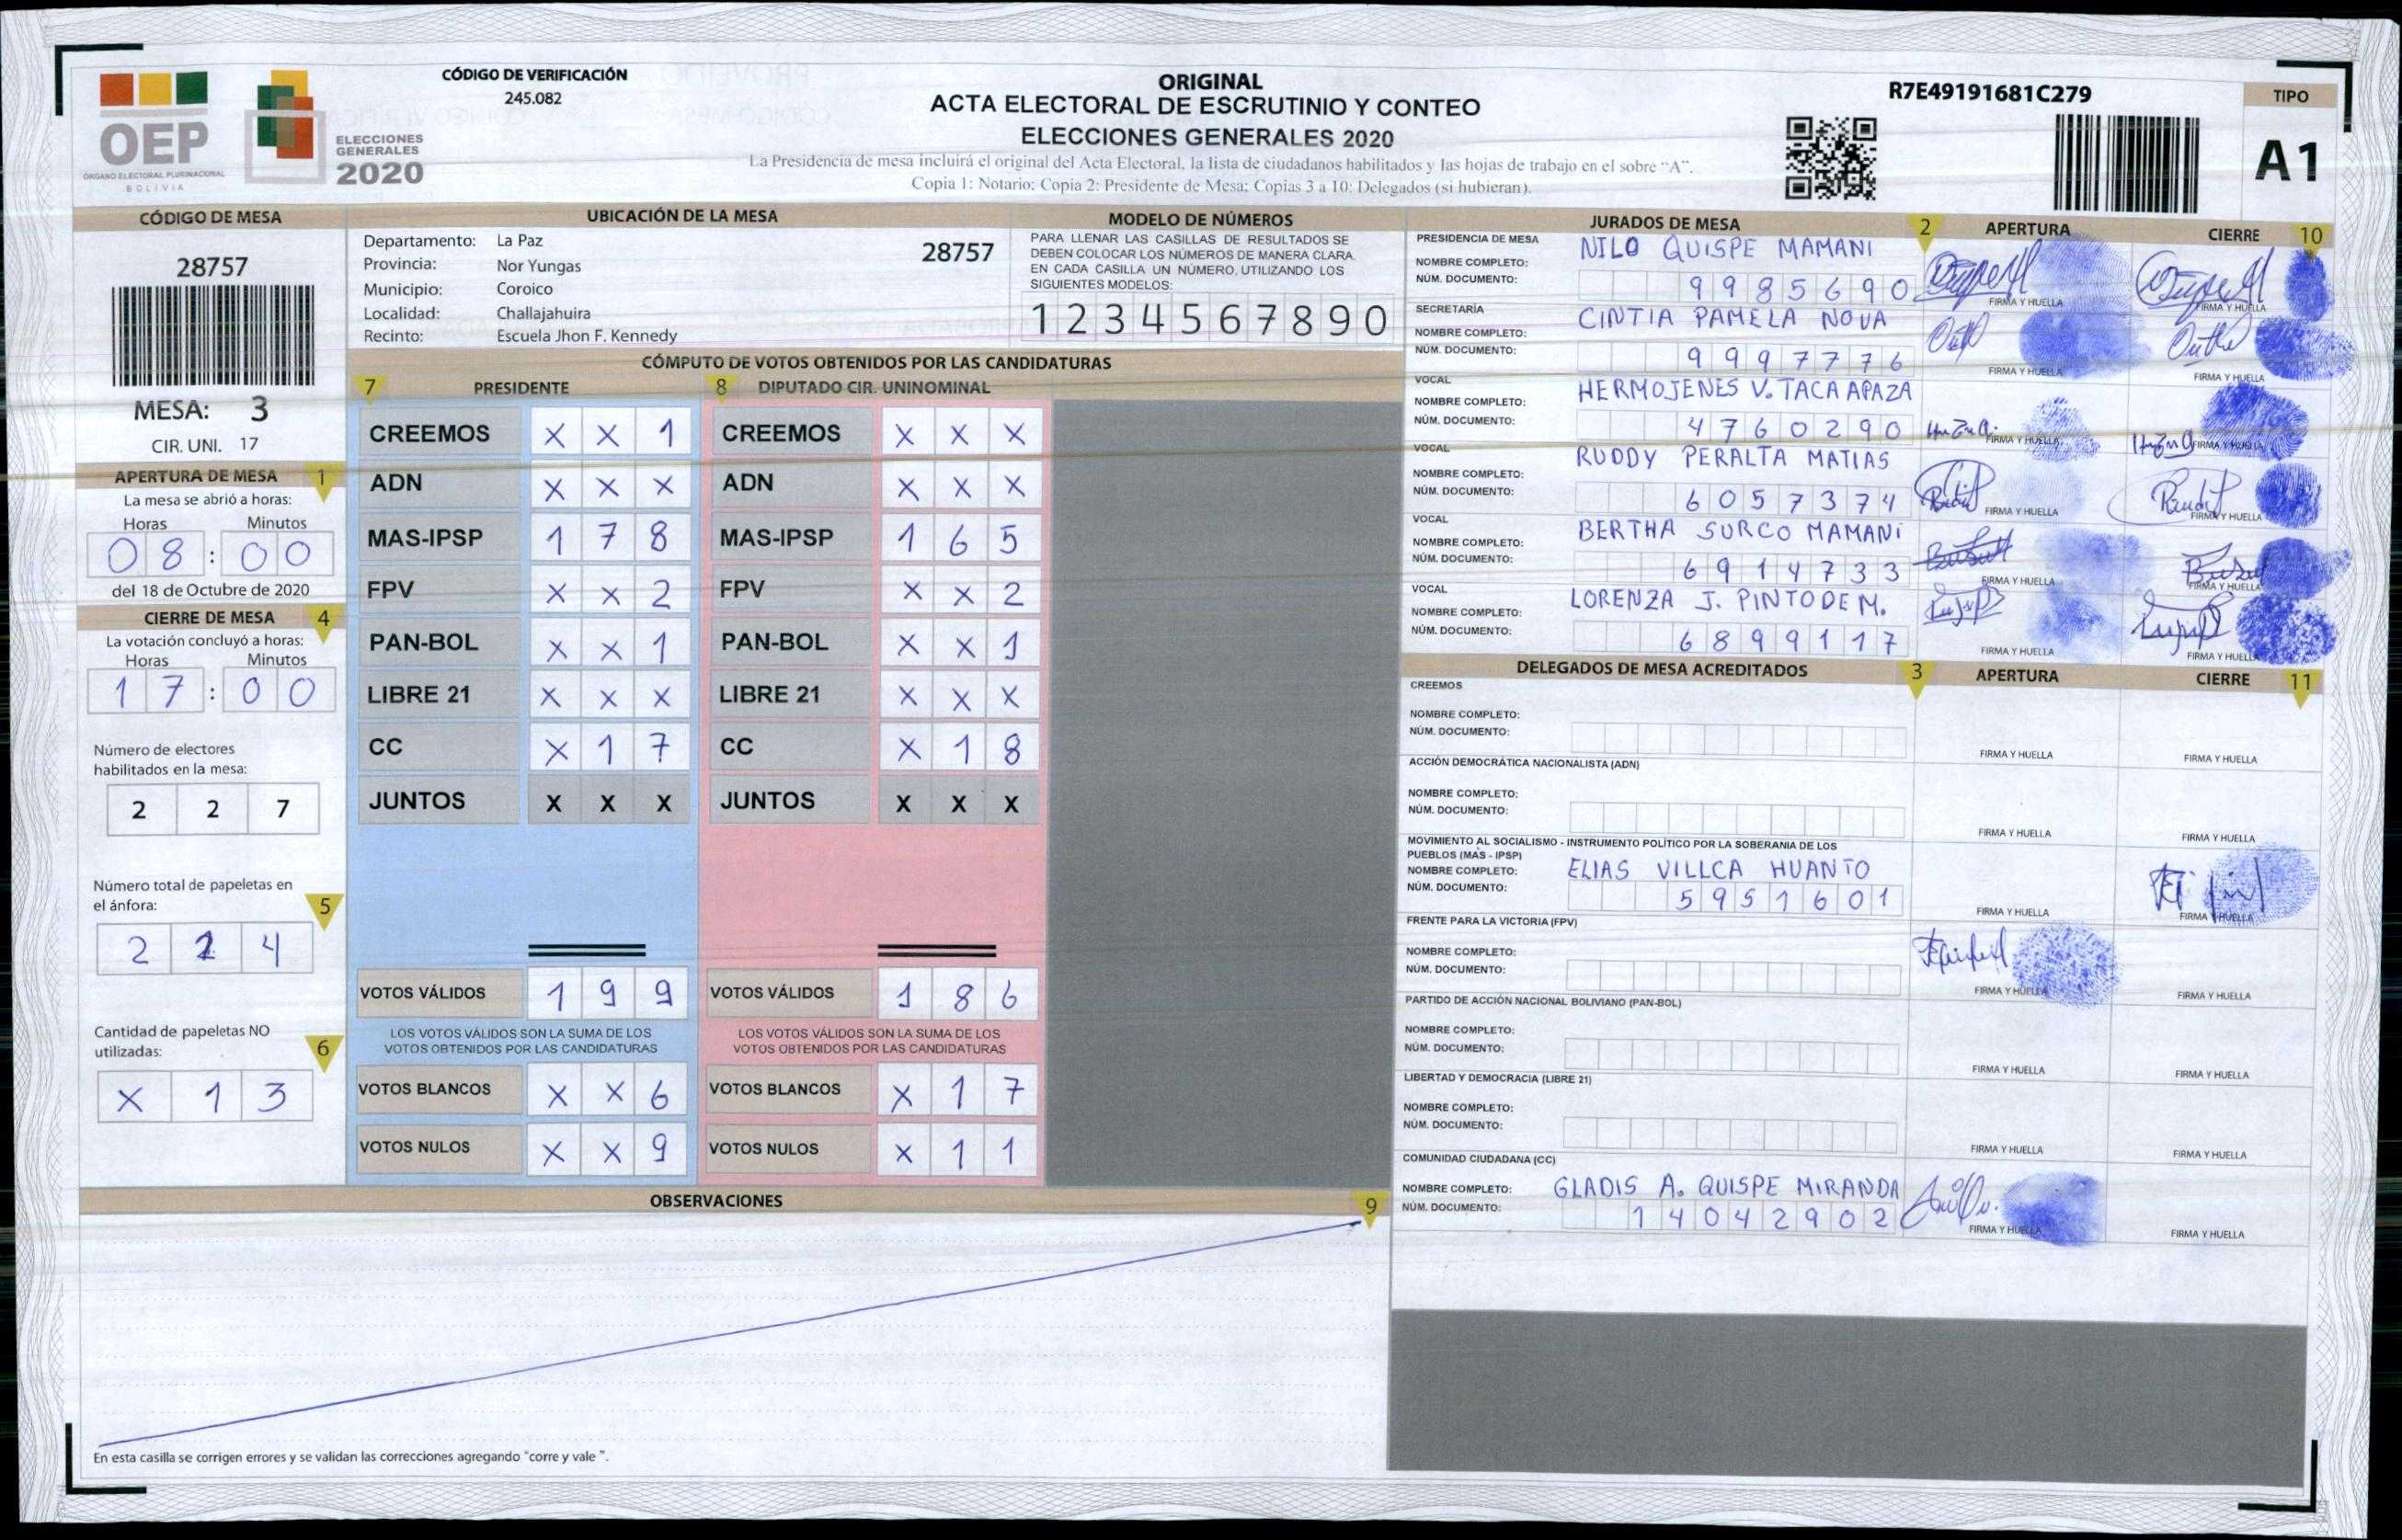 OEP
ÓRGANO ELECTORAL PLURINACIONAL
BOLIVIA
ELECCIONES
GENERALES
2020
CÓDIGO DE VERIFICACIÓN
245.082
ORIGINAL
ACTA ELECTORAL DE ESCRUTINIO Y CONTEO
ELECCIONES GENERALES 2020
La Presidencia de mesa incluirá el original del Acta Electoral, la lista de ciudadanos habilitados y las hojas de trabajo en el sobre “A”.
Copia 1: Notario; Copia 2: Presidente de Mesa; Copias 3 a 10: Delegados (si hubieran).
R7E49191681C279
TIPO
A1
CÓDIGO DE MESA
28757
MESA: 3
CIR. UNI. 17
APERTURA DE MESA 1
La mesa se abrió a horas:
Horas Minutos
08 : 00
del 18 de Octubre de 2020
CIERRE DE MESA 4
La votación concluyó a horas:
Horas Minutos
17 : 00
Número de electores
habilitados en la mesa:
2 2 7
Número total de papeletas en
el ánfora: 5
2 4
Cantidad de papeletas NO
utilizadas: 6
X 1 3
UBICACIÓN DE LA MESA
Departamento: La Paz
28757
Provincia: Nor Yungas
Municipio: Coroico
Localidad: Challajahuira
Recinto: Escuela Jhon F. Kennedy
MODELO DE NÚMEROS
PARA LLENAR LAS CASILLAS DE RESULTADOS SE
DEBEN COLOCAR LOS NÚMEROS DE MANERA CLARA.
EN CADA CASILLA UN NÚMERO, UTILIZANDO LOS
SIGUIENTES MODELOS:
1 2 3 4 5 6 7 8 9 0
CÓMPUTO DE VOTOS OBTENIDOS POR LAS CANDIDATURAS
7 PRESIDENTE 8 DIPUTADO CIR. UNINOMINAL
CREEMOS X X 1 CREEMOS X X X
ADN X X X ADN X X X
MAS-IPSP 1 7 8 MAS-IPSP 1 6 5
FPV X X 2 FPV X X 2
PAN-BOL X X 1 PAN-BOL X X 1
LIBRE 21 X X X LIBRE 21 X X X
CC X 1 7 CC X 1 8
JUNTOS X X X JUNTOS X X X
VOTOS VÁLIDOS 1 9 9 VOTOS VÁLIDOS 1 8 6
LOS VOTOS VÁLIDOS SON LA SUMA DE LOS LOS VOTOS VÁLIDOS SON LA SUMA DE LOS
VOTOS OBTENIDOS POR LAS CANDIDATURAS VOTOS OBTENIDOS POR LAS CANDIDATURAS
VOTOS BLANCOS X X 6 VOTOS BLANCOS X 1 7
VOTOS NULOS X X 9 VOTOS NULOS X 1 1
OBSERVACIONES 9
En esta casilla se corrigen errores y se validan las correcciones agregando “corre y vale ”.
JURADOS DE MESA 2 APERTURA CIERRE 10
PRESIDENCIA DE MESA
NOMBRE COMPLETO: NILO QUISPE MAMANI
NÚM. DOCUMENTO: 9985690
FIRMA Y HUELLA FIRMA Y HUELLA
SECRETARÍA
NOMBRE COMPLETO: CINTIA PAMELA NOVA
NÚM. DOCUMENTO: 9997776
FIRMA Y HUELLA FIRMA Y HUELLA
VOCAL
NOMBRE COMPLETO: HERMOJENES V. TACA APAZA
NÚM. DOCUMENTO: 4760290
FIRMA Y HUELLA FIRMA Y HUELLA
VOCAL
NOMBRE COMPLETO: RUDDY PERALTA MATIAS
NÚM. DOCUMENTO: 6057374
FIRMA Y HUELLA FIRMA Y HUELLA
VOCAL
NOMBRE COMPLETO: BERTHA SURCO MAMANI
NÚM. DOCUMENTO: 6914733
FIRMA Y HUELLA FIRMA Y HUELLA
VOCAL
NOMBRE COMPLETO: LORENZA J. PINTO DE M.
NÚM. DOCUMENTO: 6899117
FIRMA Y HUELLA FIRMA Y HUELLA
DELEGADOS DE MESA ACREDITADOS 3 APERTURA CIERRE 11
CREEMOS
NOMBRE COMPLETO:
NÚM. DOCUMENTO:
FIRMA Y HUELLA FIRMA Y HUELLA
ACCIÓN DEMOCRÁTICA NACIONALISTA (ADN)
NOMBRE COMPLETO:
NÚM. DOCUMENTO:
FIRMA Y HUELLA FIRMA Y HUELLA
MOVIMIENTO AL SOCIALISMO - INSTRUMENTO POLÍTICO POR LA SOBERANIA DE LOS
PUEBLOS (MAS - IPSP)
NOMBRE COMPLETO: ELIAS VILLCA HUANTO
NÚM. DOCUMENTO: 5951601
FIRMA Y HUELLA FIRMA Y HUELLA
FRENTE PARA LA VICTORIA (FPV)
NOMBRE COMPLETO:
NÚM. DOCUMENTO:
FIRMA Y HUELLA FIRMA Y HUELLA
PARTIDO DE ACCIÓN NACIONAL BOLIVIANO (PAN-BOL)
NOMBRE COMPLETO:
NÚM. DOCUMENTO:
FIRMA Y HUELLA FIRMA Y HUELLA
LIBERTAD Y DEMOCRACIA (LIBRE 21)
NOMBRE COMPLETO:
NÚM. DOCUMENTO:
FIRMA Y HUELLA FIRMA Y HUELLA
COMUNIDAD CIUDADANA (CC)
NOMBRE COMPLETO: GLADIS A. QUISPE MIRANDA
NÚM. DOCUMENTO: 14042902
FIRMA Y HUELLA FIRMA Y HUELLA